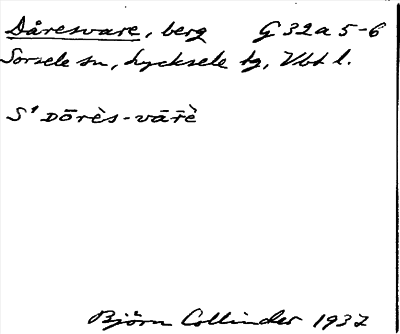 Dåresvare, berg G 32a 5-6
Sorsele sn, Lycksele tg, Vbt l.
S' Dōrès-vār̄è
Björn Collinder 1937